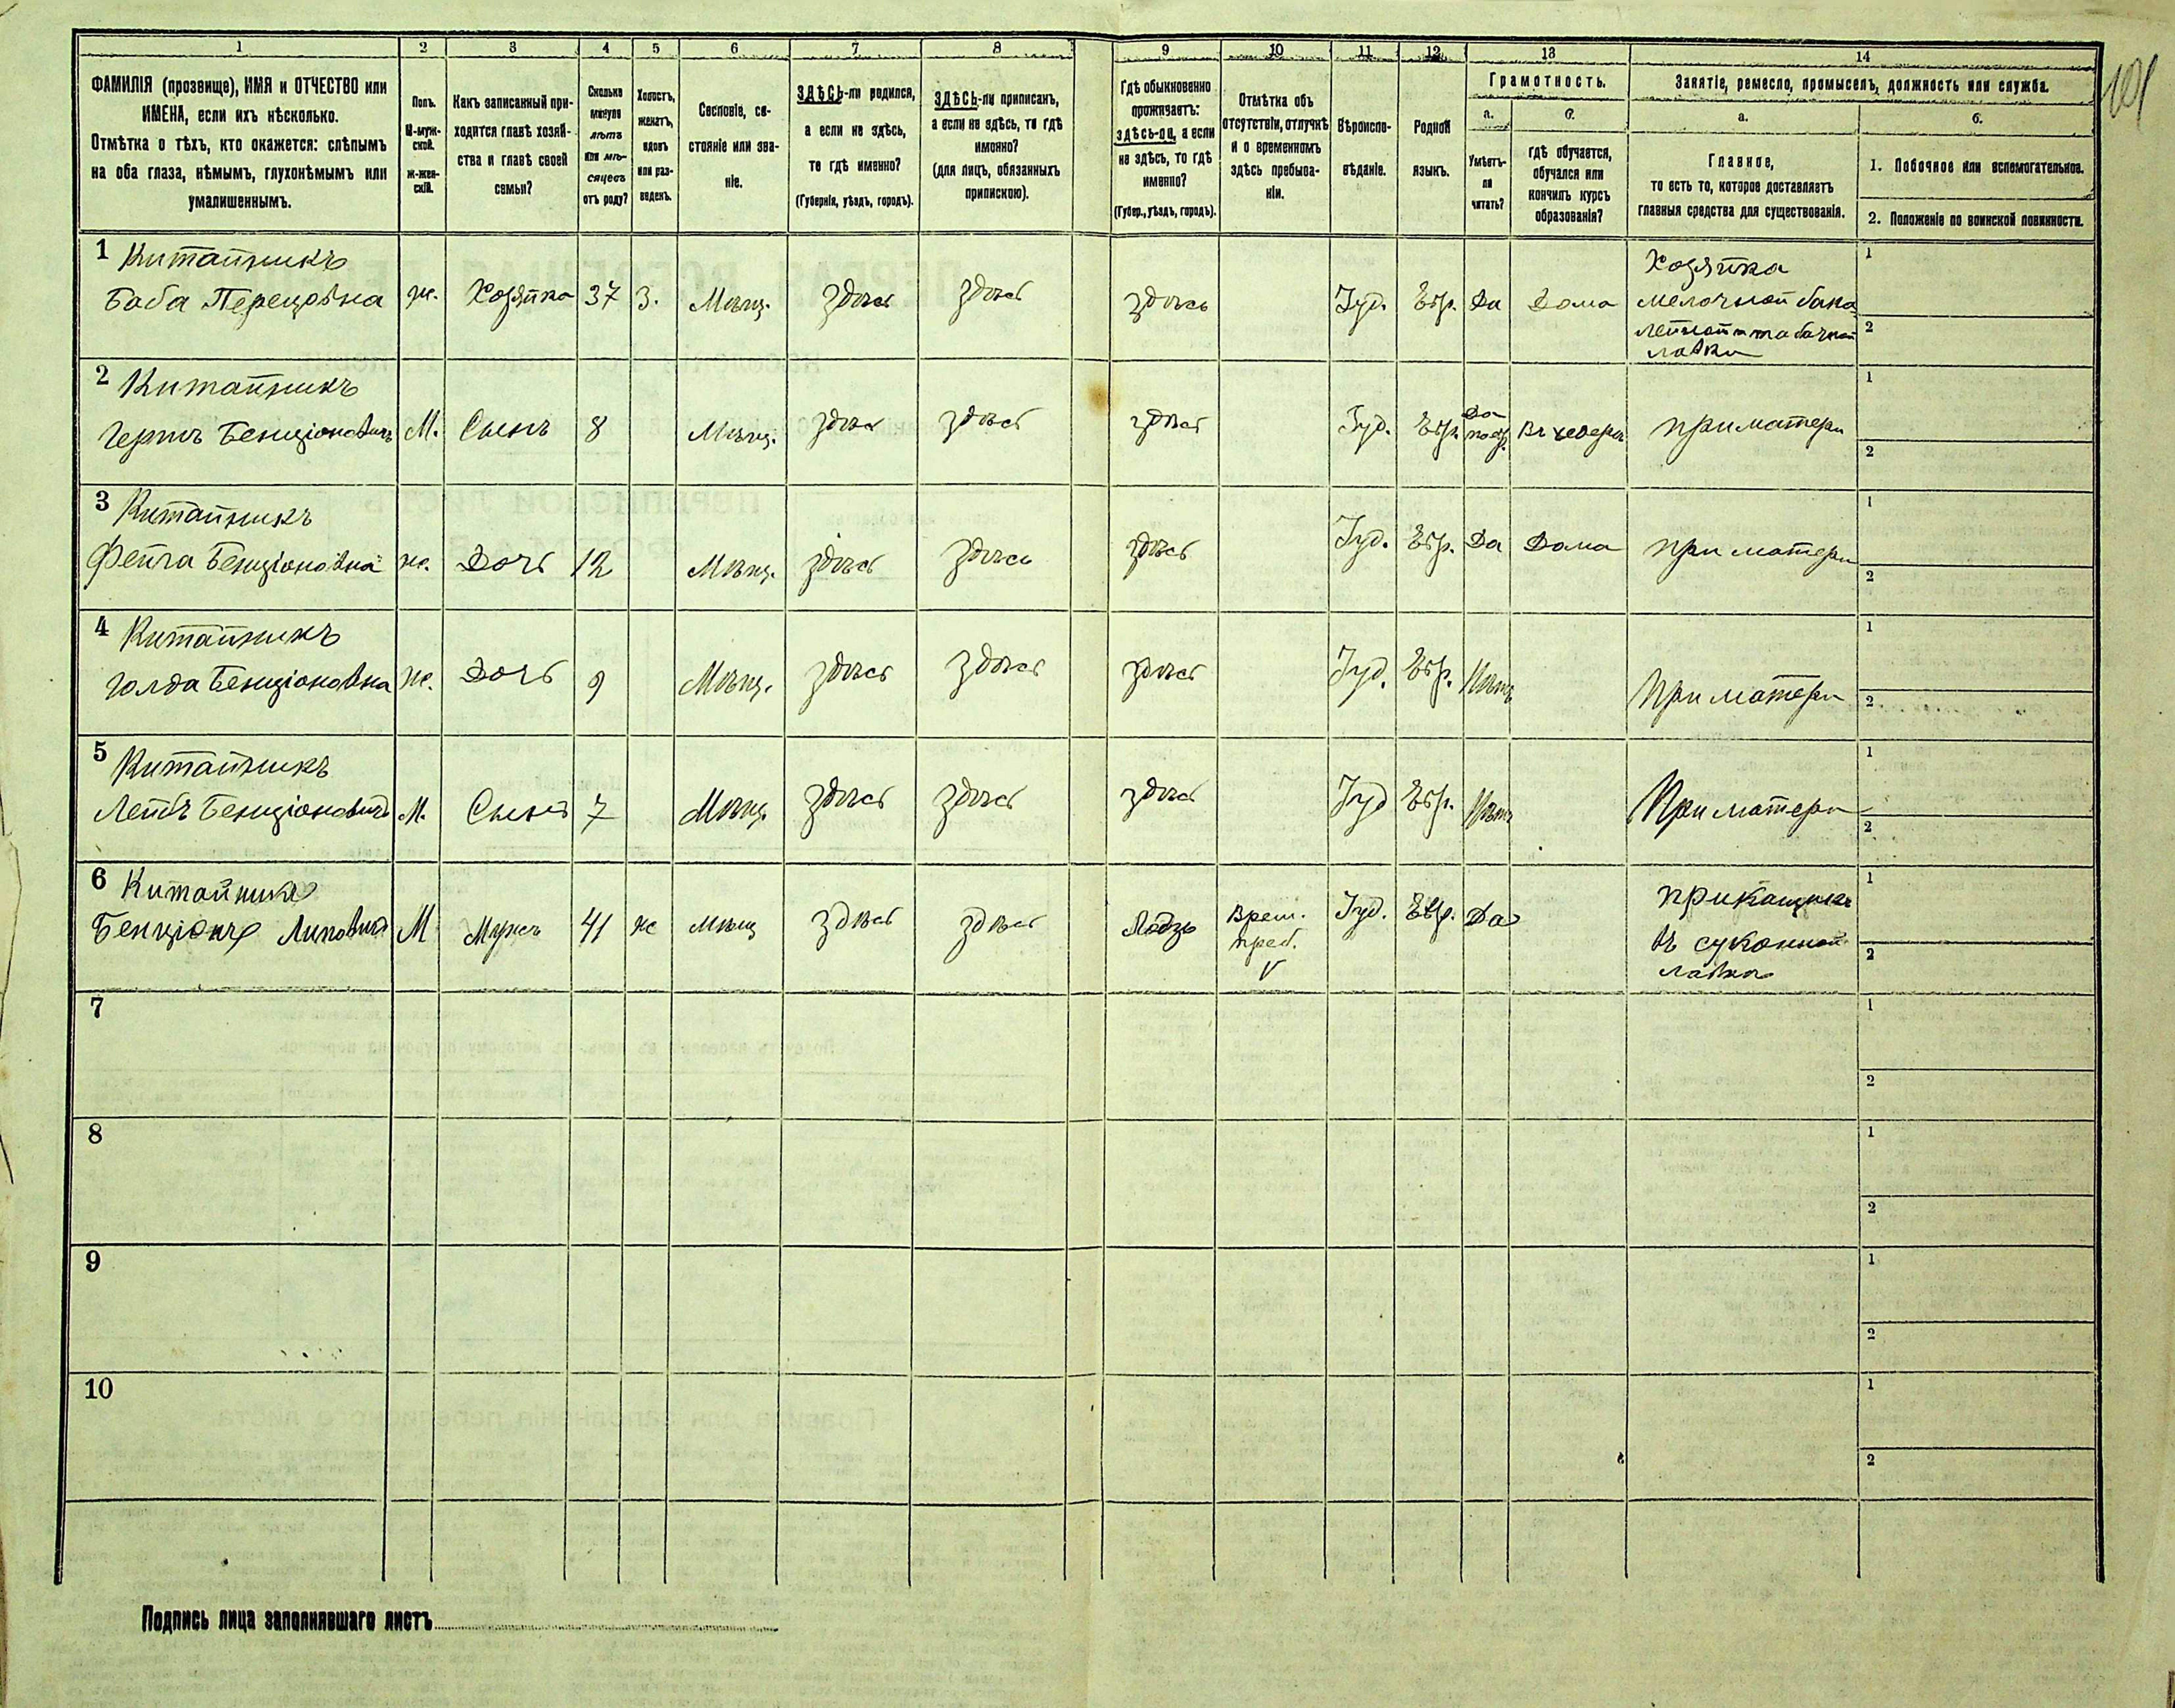 101
1 2 3 4 5 6 7 8 9 10 11 12 13 14
ФАМИЛІЯ (прозвище), ИМЯ и ОТЧЕСТВО или
ИМЕНА, если ихъ нѣсколько.
Отмѣтка о тѣхъ, кто окажется: слѣпымъ
на оба глаза, нѣмымъ, глухонѣмымъ или
умалишеннымъ.
Полъ.
М-муж-
ской.
ж-жен-
скій.
Какъ записанный при-
ходится главѣ хозяй-
ства и главѣ своей
семьи?
Сколько
минуло
лѣтъ
или мѣ-
сяцевъ
отъ роду?
Холостъ,
женатъ,
вдовъ
или раз-
веденъ.
Сословіе, со-
стояніе или зва-
ніе.
ЗДѢСЬ-ли родился,
а если не здѣсь,
то гдѣ именно?
(Губернія, уѣздъ, городъ).
ЗДѢСЬ-ли приписанъ,
а если не здѣсь, то гдѣ
именно?
(для лицъ, обязанныхъ
припискою).
Гдѣ обыкновенно
проживаетъ:
здѣсь-ли, а если
не здѣсь, то гдѣ
именно?
(Губер., уѣздъ, городъ).
Отмѣтка объ
отсутствіи, отлучкѣ
и о временномъ
здѣсь пребыва-
ніи.
Вѣроиспо-
вѣданіе.
Родной
языкъ.
Грамотность.
а.
Умѣетъ-
ли
читать?
б.
гдѣ обучается,
обучался или
кончилъ курсъ
образованія?
Занятіе, ремесло, промыселъ, должность или служба.
а.
Главное,
то есть то, которое доставляетъ
главныя средства для существованія.
б.
1. Побочное или вспомогательное.
2. Положеніе по воинской повинности.
1 Китайникъ
Баба Перецовна ж. Хозяйка 37 З. Мѣщ. Здѣсь Здѣсь Здѣсь Іуд. Евр. Да Дома
Хозяйка
мелочной бака
лейной и табачной
лавки
1
2
2 Китайникъ
Гершъ Бенціоновичъ М. Сынъ 8 Мѣщ. Здѣсь Здѣсь Здѣсь Іуд. Евр. Да по евр. Въ хедерѣ при матери
1
2
3 Китайникъ
Фейга Бенціоновна ж. Дочь 12 Мѣщ. Здѣсь Здѣсь Здѣсь Іуд. Евр. Да Дома при матери
1
2
4 Китайникъ
Голда Бенціоновна ж. Дочь 9 Мѣщ. Здѣсь Здѣсь Здѣсь Іуд. Евр. Нѣтъ При матери
1
2
5 Китайникъ
Лейбъ Бенціоновичъ М. Сынъ 7 Мѣщ. Здѣсь Здѣсь Здѣсь Іуд Евр. Нѣтъ При матери
1
2
6 Китайникъ
Бенціонъ Липовичъ М Мужъ 41 ж мѣщ здѣсь здѣсь Лодзь Врем. преб. V Іуд. Евр. Да
прикащикъ
въ суконной
лавкѣ
1
2
7
1
2
8
1
2
9
1
2
10
1
2
Подпись лица заполнявшаго листъ